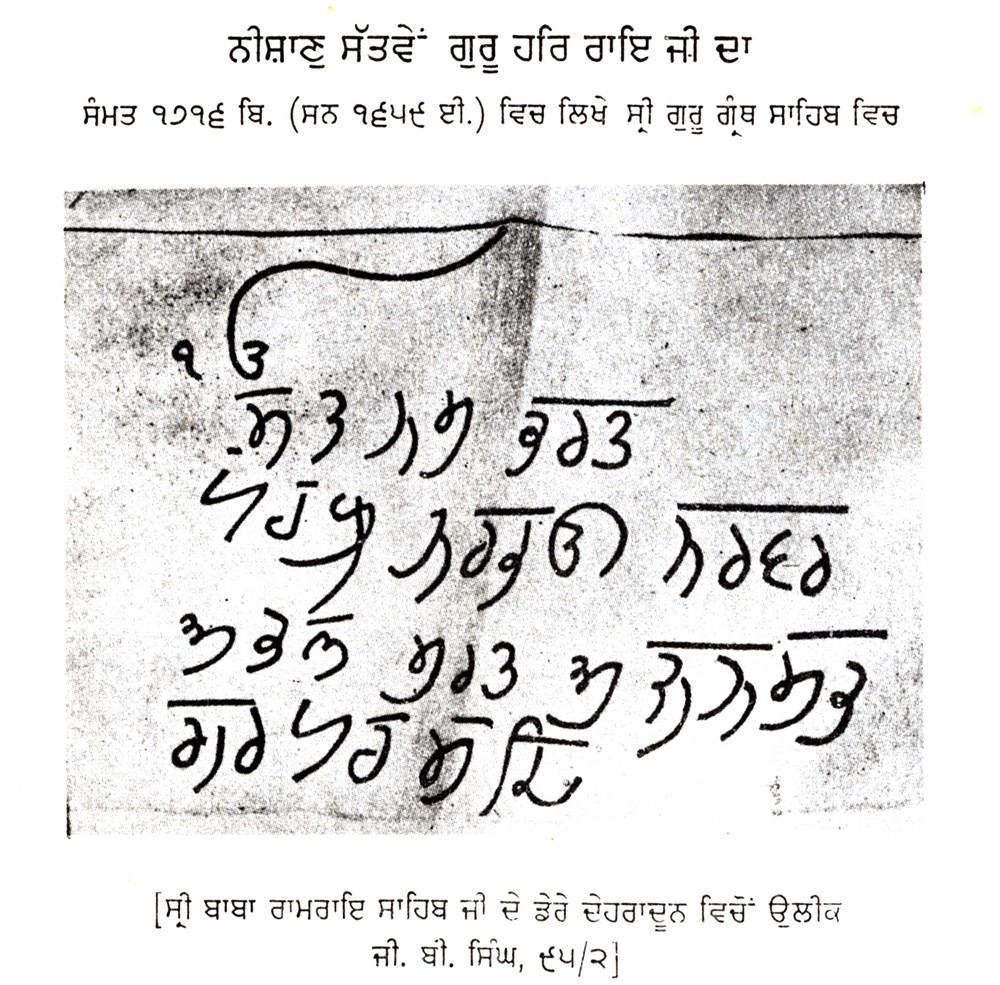 ਨੀਸ਼ਾਣੁ ਸੱਤਵੇਂ ਗੁਰੂ ਹਰਿ ਰਾਇ ਜੀ ਦਾ
ਸੰਮਤ ੧੭੧੬ ਬਿ. (ਸਨ ੧੬੫੯ ਈ.) ਵਿਚ ਲਿਖੇ ਸ੍ਰੀ ਗੁਰੂ ਗ੍ਰੰਥ ਸਾਹਿਬ ਵਿਚ
ੴ
ਸਤ ਨਮ ਕਰਤ
ਪਰਖ ਨਰਭਉ ਨਰਵਰ
ਅਕਲ ਮਰਤ ਅ ਜਨ ਸਭ
ਗਰ ਪਰ ਸਦ
[ਸ੍ਰੀ ਬਾਬਾ ਰਾਮਰਾਇ ਸਾਹਿਬ ਜੀ ਦੇ ਡੇਰੇ ਦੇਹਰਾਦੂਨ ਵਿਚੋਂ ਉਲੀਕ
ਜੀ. ਬੀ. ਸਿੰਘ, ੯੫/੨]